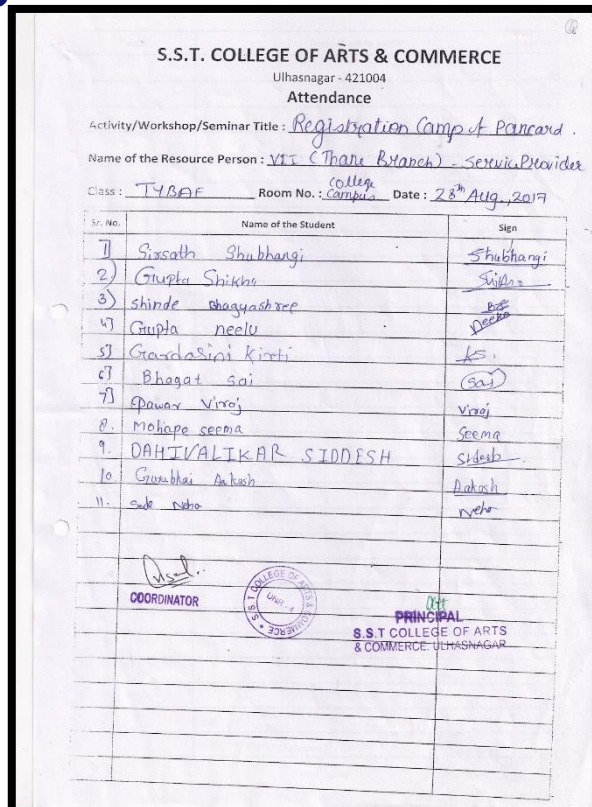 S.S.T. COLLEGE OF ARTS & COMMERCE
Ulhasnagar - 421004
Attendance
Activity/Workshop/Seminar Title : Registration Camp of Pancard .
Name of the Resource Person : VII (Thane Branch) - Service Provider
Class : TYBAF Room No. : College Campus Date : 28th Aug., 2017
Sr. No. Name of the Student Sign
1] Sirsath Shubhangi Shubhangi
2) Gupta Shikha
3) Shinde Bhagyashree
4] Gupta neelu Neelu
5] Gardasini Kirti KS.
6] Bhagat sai Sai
7] Pawar Viraj Viraj
8. Mohape seema Seema
9. DAHIVALIKAR SIDDESH Sidesh
10 Gurubhai Aakash Aakash
11. Neha Neha
COORDINATOR
S.S.T COLLEGE OF ARTS & COMMERCE
UNR - 4
PRINCIPAL
S.S.T COLLEGE OF ARTS
& COMMERCE. ULHASNAGAR